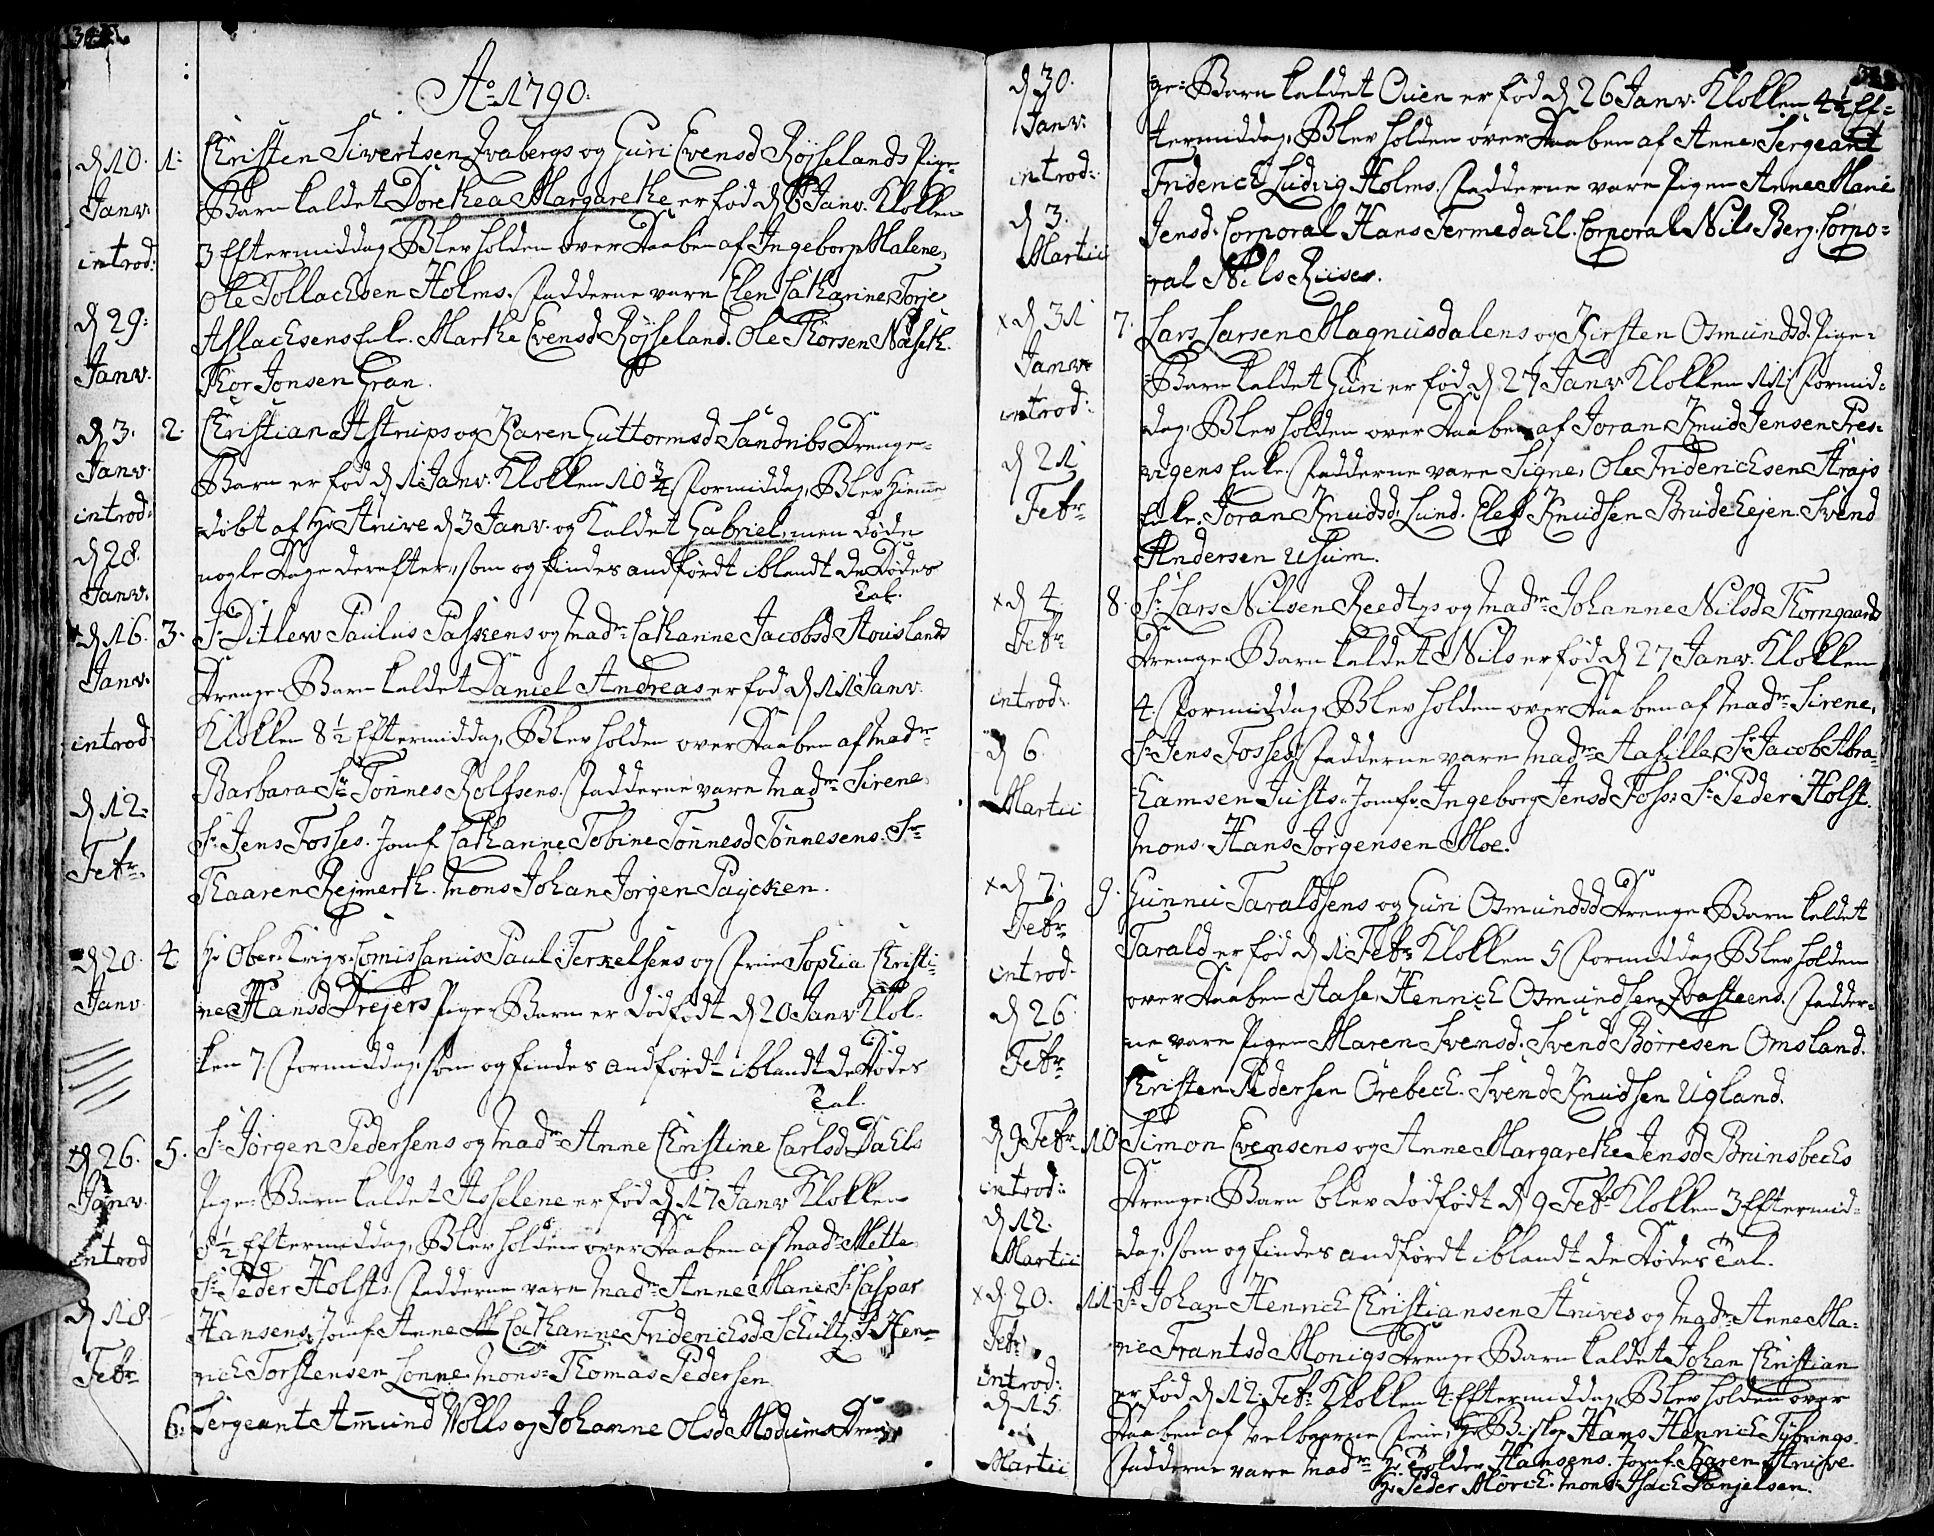 Ao 1790.
d 10. Janv. introd: d 29: Janv.
1. Christen Sivertsen Qvabergs og Guri Evensd Røjselands Pige-
Barn kaldet Dorethea Margarethe er fød d 8 Janv. Klokken
3 Eftermiddag, Blev holden over Daaben af Ingeborg Malene,
Ole Tollachsen Holms. Fadderne vare Elen Catharine Torje
Aslachsens Enke. Marthe Evensd Røjseland. Ole Thorsen Næseth.
Thor Jonsen Gran.
d 3. Janv. introd: d 28. Janv.
2. Christian Astrups og Karen Guttormsd Sandvibs Drenge-
Barn er fød d 1 Janv. Klokken 10 3/4 Formiddag, Blev hiemme
døbt af Hr Arnive d 3 Janv. og kaldet Gabriel, men døde
nogle Dage derefter, som og findes andførdt iblandt De Dødes
Tal.
d 16. Janv. introd d 12. Febr.
3. Sr Ditlew Paulus Passens og Madm Catharine Jacobsd Stouslands
Drenge-Barn kaldet Daniel Andreas er fød d 11 Janv.
Klokken 8 1/2 Eftermiddag, Blev holden over Daaben af Madm
Barbara Sr Tønnes Rolfsens. Fadderne vare Madm Sirene,
Sr Jens Fosses. Jomf. Catharine Tobine Tønnesd Tønnesens. Sr
Thaaren Rejmerth. Mons Johan Jørgen Paycken.
d 20. Janv.
4 Hr Ober Krigs Comissarius Paul Terkelsens og Frue Sophia Christi-
ne Hansd Drejers Pige-Barn er dødfødt d 20 Janv. Klok-
ken 7 Formiddag, som og findes andførdt iblandt De Dødes
Tal.
d 26. Janv. introd d 18. Febr
5. Sr Jørgen Pedersens og Madm Anne Christine Carlsd Dahls
Pige-Barn kaldet Asselene er fød d 17 Janv Klokken
5 1/2 Eftermiddag, Blev holden over Daaben af Madm Mette,
Sr Peder Holsts. Fadderne vare Madm Anne Marie Sr Caspar
Hansens. Jomf. Anne Catharine Friderichsd Schultz. Sr Hen-
rich Torstensen Lønne. Mons: Thomas Pedersen
6. Sergeant Amund Wolls og Johanne Olsd Modums Dren-
d 30. Janv. introd: d 3. Martii
ge-Barn kaldet Ouen er fød d 26 Janv. Klokken 4 1/2 Ef-
termiddag, Blev holden over Daaben af Anne, Sergeant
Friderich Ludvig Holms. Fadderne vare Pigen Anne Marie
Jensd. Corporal Hans Termedahl. Corporal Nils Berg. Corpo-
ral Nils Riises.
x d 31 Janv. introd: d 21 Febr
7. Lars Larsen Magnusdalens og Kirsten Osmundsd. Pige-
Barn kaldet Guri er fød d 27 Janv. Klokken 11 Formid-
dag, Blev holden over Daaben af Joran Knud Jensen Pres-
vigens Enke. Fadderne vare Signe, Ole Friderichsen Strajs
Enke. Joran Knudsd. Lund. Elef Knudsen Brudelejen. Svend
Andersen Usum.
x d 4 Febr introd: d 6 Martii
8. Sr Lars Nilsen Reedtzs og Madm Johanne Nilsd Thorngaards
Drenge-Barn kaldet Nils er fød d 27 Janv. Klokken
4 Formiddag, Blev holden over Daaben af Madm Sirene,
Sr Jens Fosses. Fadderne vare Madm Aasille, Sr Jacob Abra-
hamsen Juists. Jomf. Ingeborg Jensd Foss. Sr Peder Holst.
Mons. Hans Jørgensen Moe.
x d 7. Febr introd. d 26. Febr
9. Gunnu Taraldsens og Guri Osmundsd Drenge-Barn kaldet
Tarald er fød d 1 Febr Klokken 5 Formiddag, Blev holden
over Daaben Aase, Henrich Osmundsen Qvasteens. Fadder-
ne vare Pigen Maren Svensd. Svend Børresen Omsland.
Christen Pedersen Ørebech. Svend Knudsen Ugland.
d 9 Febr introd: d 12. Martii
10 Simon Evensens og Anne Margarethe Jensd Bruinsbechs
Drenge-Barn blev dødfødt d 9 Febr. Klokken 3 Eftermid-
dag, som og findes andførdt iblandt De Dødes Tal.
x d. 20. Febr. introd: d 15. Martii
11 Sr Johan Henrich Christiansen Arnives og Madm Anne Ma-
rie Frantsd Monigs Drenge-Barn kaldet Johan Christian
er fød d 12 Febr. Klokken 4 Eftermiddag, Blev holden over
Daaben af Velbaarne Frue, Hr Biskop Hans Henrich Tybrings.
Fadderne vare Madm Hr Tolder Hansens. Jomf. Karen Arnive
Hr Peder Mørch. Mons. Isach Danjelsen.